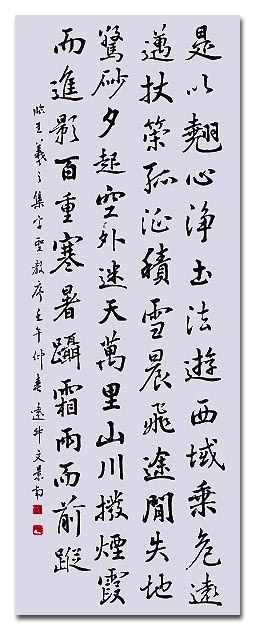 是以翹心淨土法遊西域乘危遠
邁杖策孤征積雪晨飛途間失地
驚砂夕起空外迷天萬里山川撥煙霞
而進影百重寒暑躡霜雨而前蹤
臨王羲之集字聖教序壬午仲春遠文景南